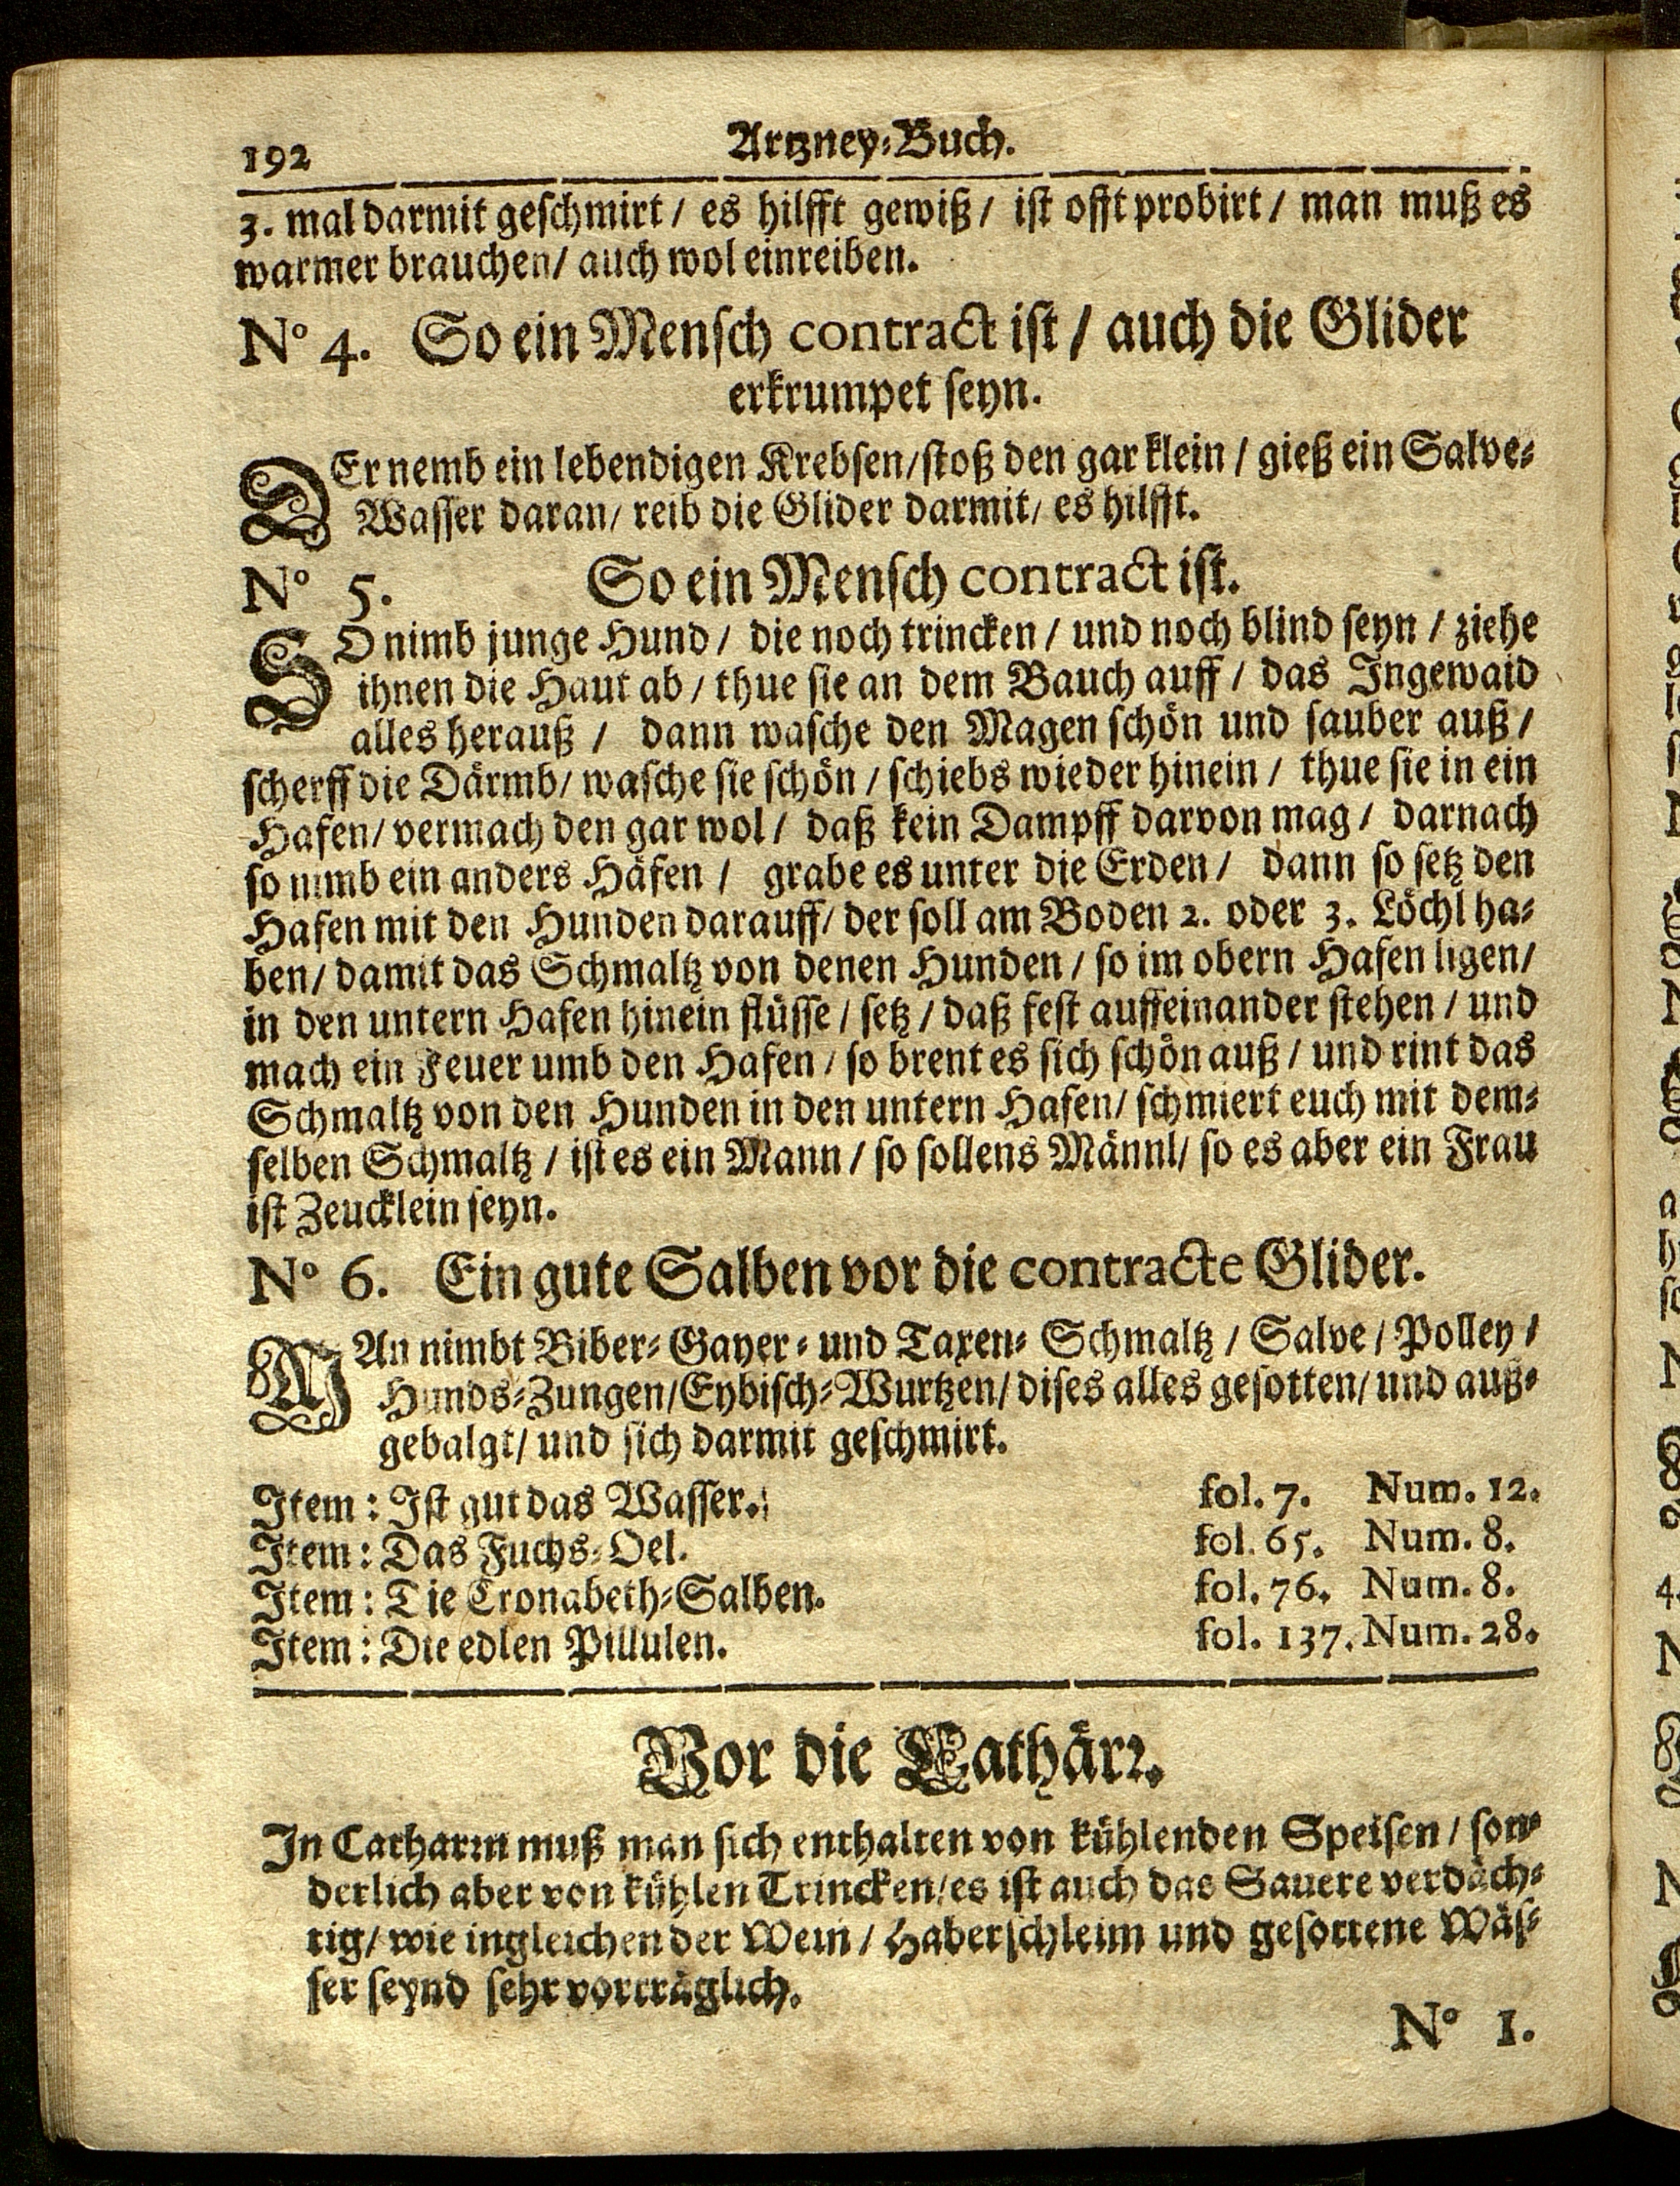 192 Artzney-Buch.
3. mal darmit geschmirt / es hilfft gewiß / ist offt probirt / man muß es
warmer brauchen / auch wol einreiben.
N° 4. So ein Mensch contract ist / auch die Glider
erkrumpet seyn.
DEr nemb ein lebendigen Krebsen / stoß den gar klein / gieß ein Salve-
Wasser daran / reib die Glider darmit / es hilfft.
N° 5. So ein Mensch contract ist.
SO nimb junge Hund / die noch trincken / und noch blind seyn / ziehe
ihnen die Haut ab / thue sie an dem Bauch auff / das Ingewaid
alles herauß / dann wasche den Magen schön und sauber auß /
scherff die Därmb / wasche sie schön / schiebs wieder hinein / thue sie in ein
Hafen / vermach den gar wol / daß kein Dampff darvon mag / darnach
so nimb ein anders Häfen / grabe es unter die Erden / dann so setz den
Hafen mit den Hunden darauff / der soll am Boden 2. oder 3. Löchl ha-
ben / damit das Schmaltz von denen Hunden / so im obern Hafen ligen /
in den untern Hafen hinein flüsse / setz / daß fest auffeinander stehen / und
mach ein Feuer umb den Hafen / so brent es sich schön auß / und rint das
Schmaltz von den Hunden in den untern Hafen / schmiert euch mit dem-
selben Schmaltz / ist es ein Mann / so sollens Männl / so es aber ein Frau
ist Zeucklein seyn.
N° 6. Ein gute Salben vor die contracte Glider.
MAn nimbt Biber- Gayer- und Taxen- Schmaltz / Salve / Polley /
Hunds-Zungen / Eybisch-Wurtzen / dises alles gesotten / und auß-
gebalgt / und sich darmit geschmirt.
Item: Ist gut das Wasser. fol. 7. Num. 12.
Item: Das Fuchs-Oel. fol. 65. Num. 8.
Item: Die Cronabeth-Salben. fol. 76. Num. 8.
Item: Die edlen Pillulen. fol. 137. Num. 28.
Vor die Cathärr.
In Catharrn muß man sich enthalten von kühlenden Speisen / son-
derlich aber von kühlen Trincken / es ist auch das Sauere verdäch-
tig / wie ingleichen der Wein / Haberschleim und gesottene Wäs-
ser seynd sehr vorträglich.
N° 1.